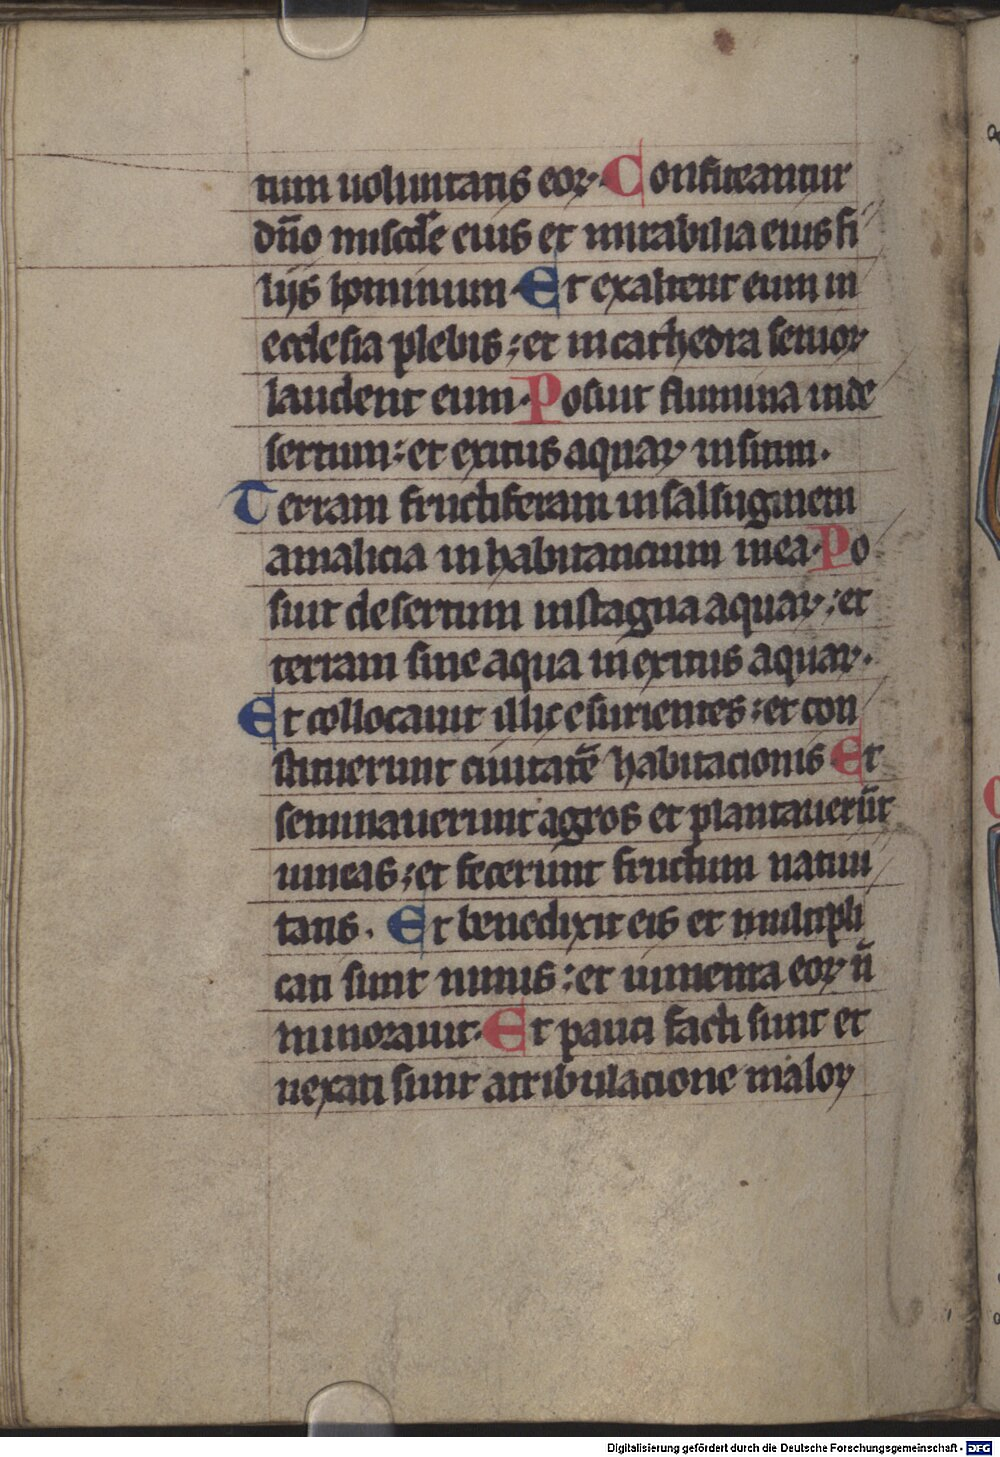 tum uoluntatis eoꝝ. Confiteantur
dn̄o miscd̄e eius et mirabilia eius fi
liis hominum Et exaltent eum in
ecclesia plebis ; et in cathedra senioꝝ
laudent eum. Posuit flumina in de
sertum : et exitus aquaꝝ in sitim.
Terram fructiferam in salsuginem
a malicia in habitancium in ea. Po
suit desertum in stagna aquaꝝ ; et
terram sine aqua in exitus aquaꝝ.
Et collocauit illic esurientes ; et con
stituerunt ciuitatē habitacionis Et
seminauerunt agros et plantauerūt
uineas ; et fecerunt fructum natiui
tatis. Et benedixit eis et multipli
cati sunt nimis : et iumenta eoꝝ n̄
minorauit. Et pauci facti sunt et
uexati sunt a tribulacione maloꝝ
Digitalisierung gefördert durch die Deutsche Forschungsgemeinschaft - DFG